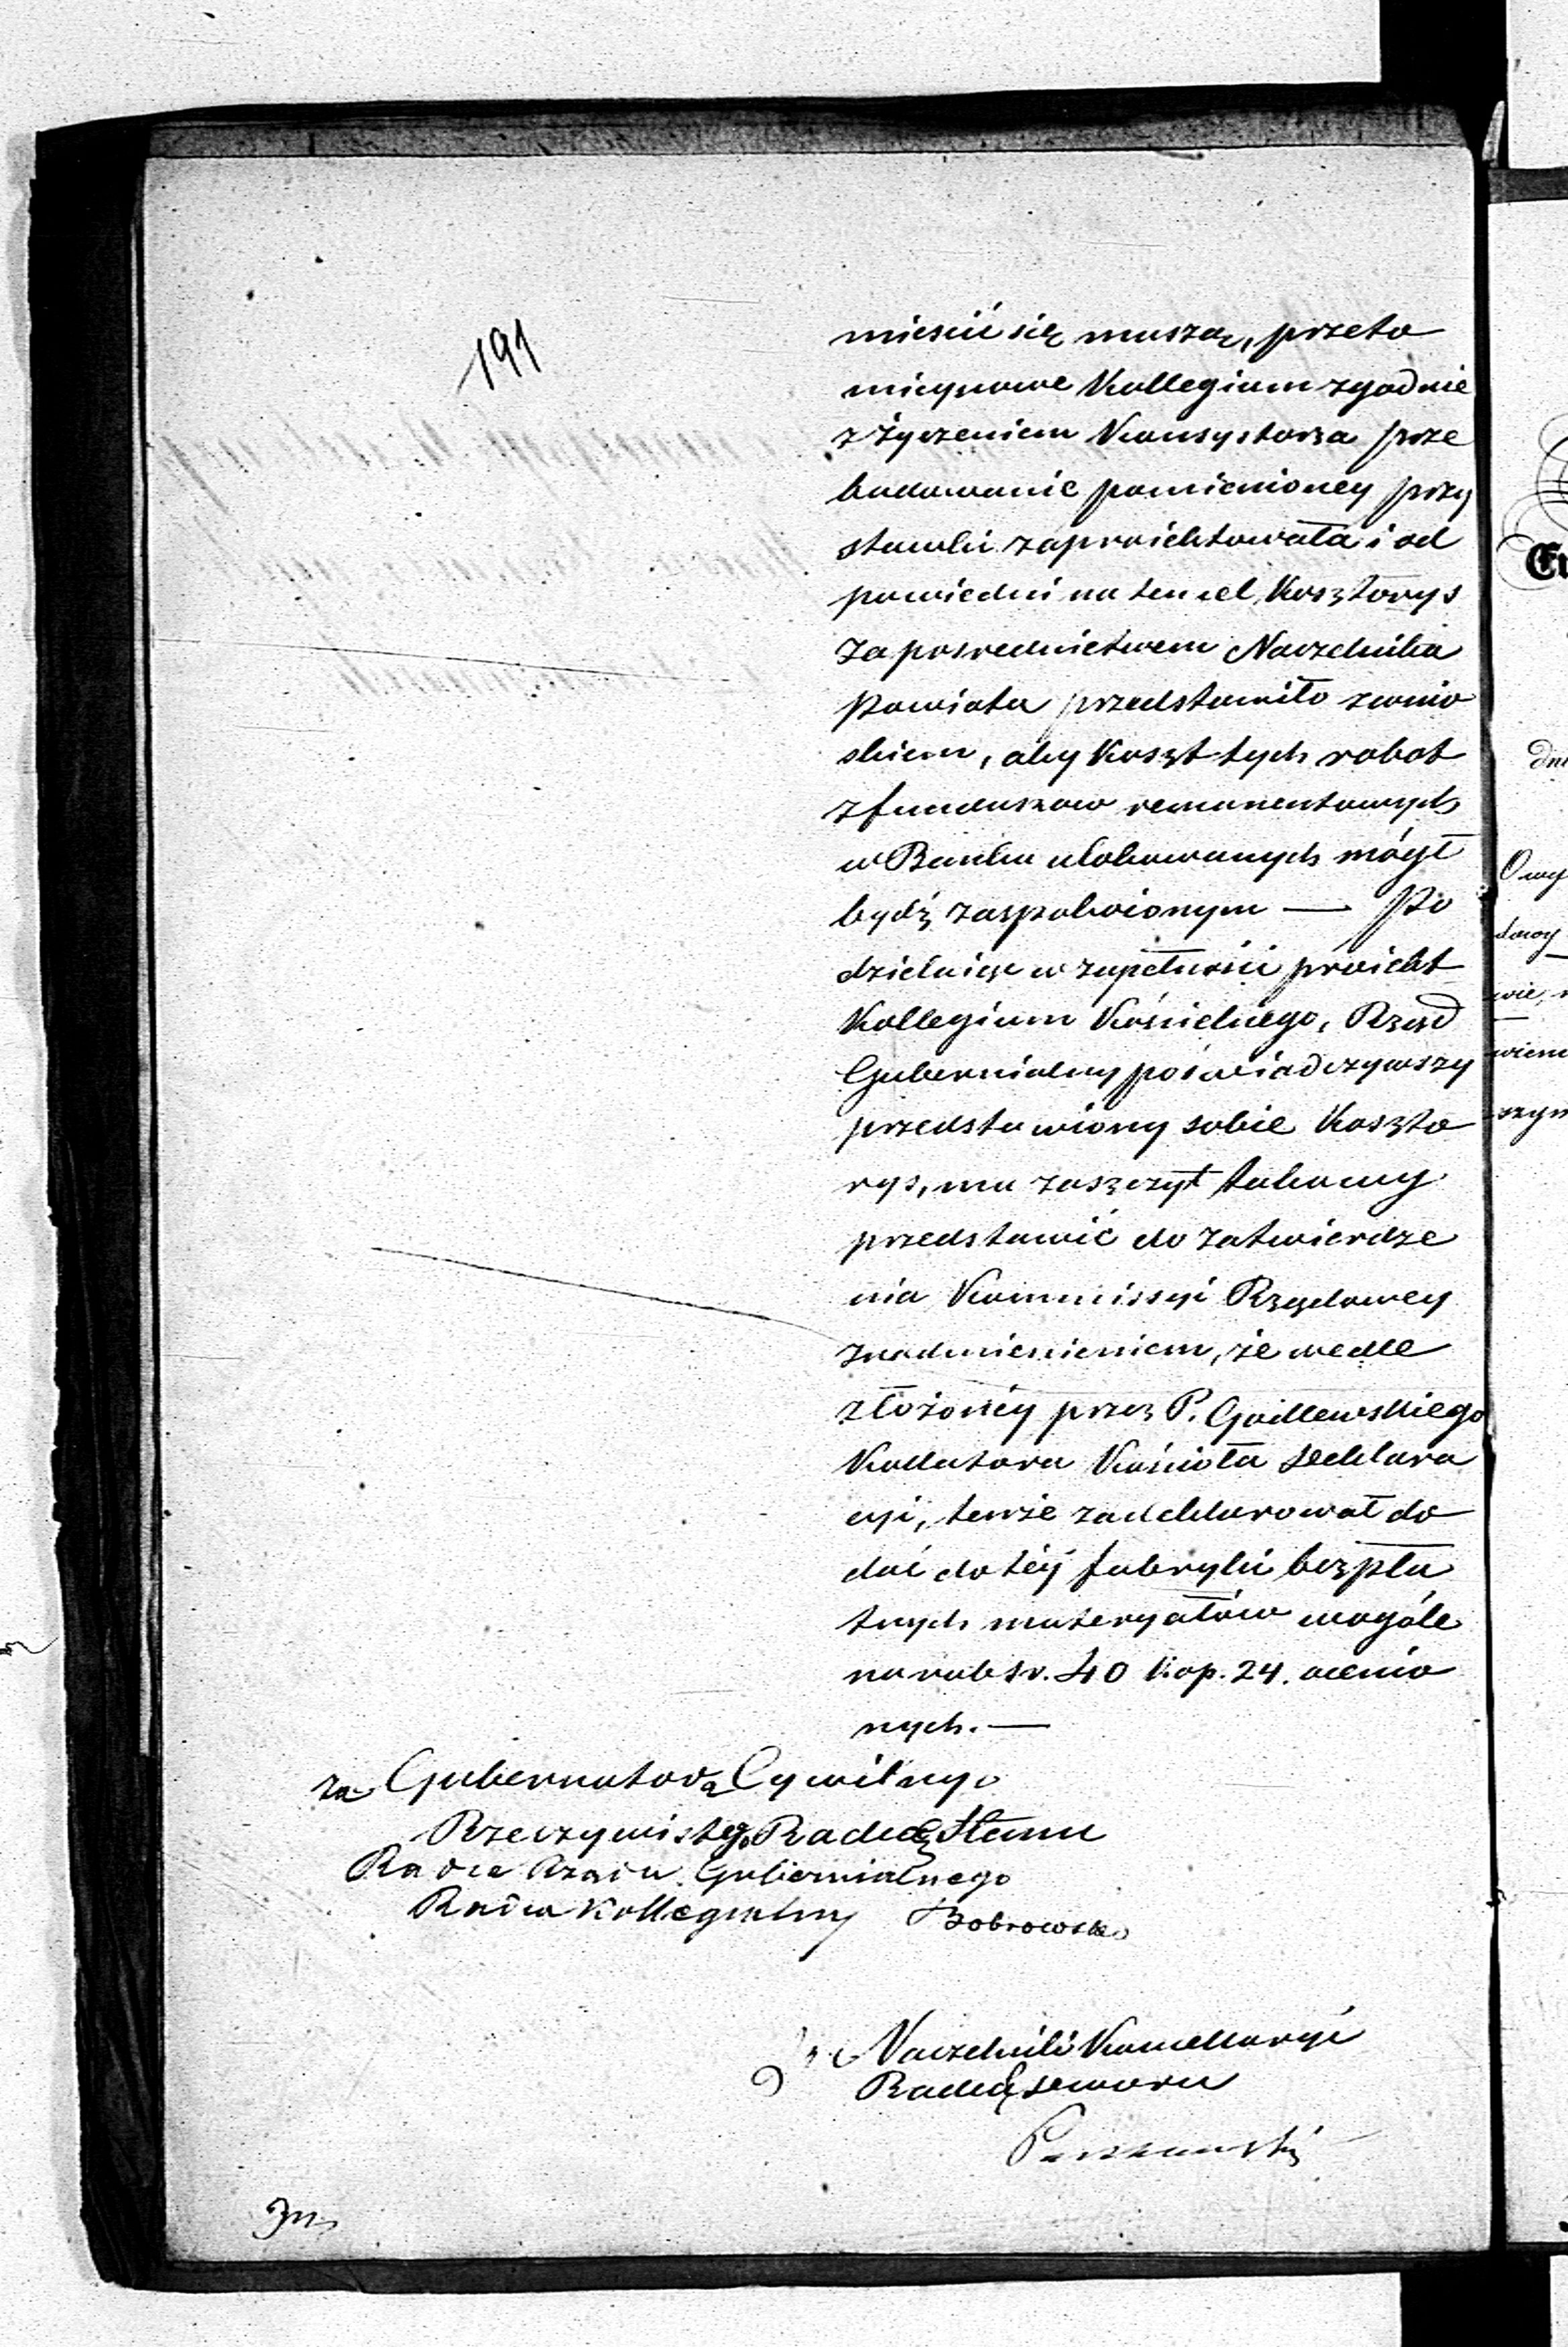 191
mieścić się muszą, przeto
mieyscowe Kollegium zgodnie
z życzeniem Konsystorza prze
budowanie pomienioney przy
stawki zaproiektowała i od
powiedni na ten cel Kosztorys
za posrednictwem Naczelnika
Powiatu przedstawiło z wnio
skiem, aby Koszt tych robot
z funduszow remanentowych
w Banku ulokowanych mógł
bydź zaspokoionym — Po
dzielaiąc w zupełności proiekt
Kollegium Kościelnego, Rząd
Gubernialny poświadczywszy
przedstawiony sobie Koszto
rys, ma zaszczyt takowy
przedstawić do zatwierdze
nia Kommissyi Rządowey
z nadmienieniem, że wedle
złożonéy przez P. Goillewskiego
Kollatora Kościoła deklara
cyi, tenże zadeklarował do
dać do téy fabryki bezpła
tnych materyałów wogóle
na rub sr. 40 kop. 24. ocenio
nych. —
za Gubernatora Cywilnego
Rzeczywistego Radcę Stanu
Radca Rządu Gubernialnego
Radca Kollegialny Bobrowski
Naczelnik Kancellaryi
Radca Dworu